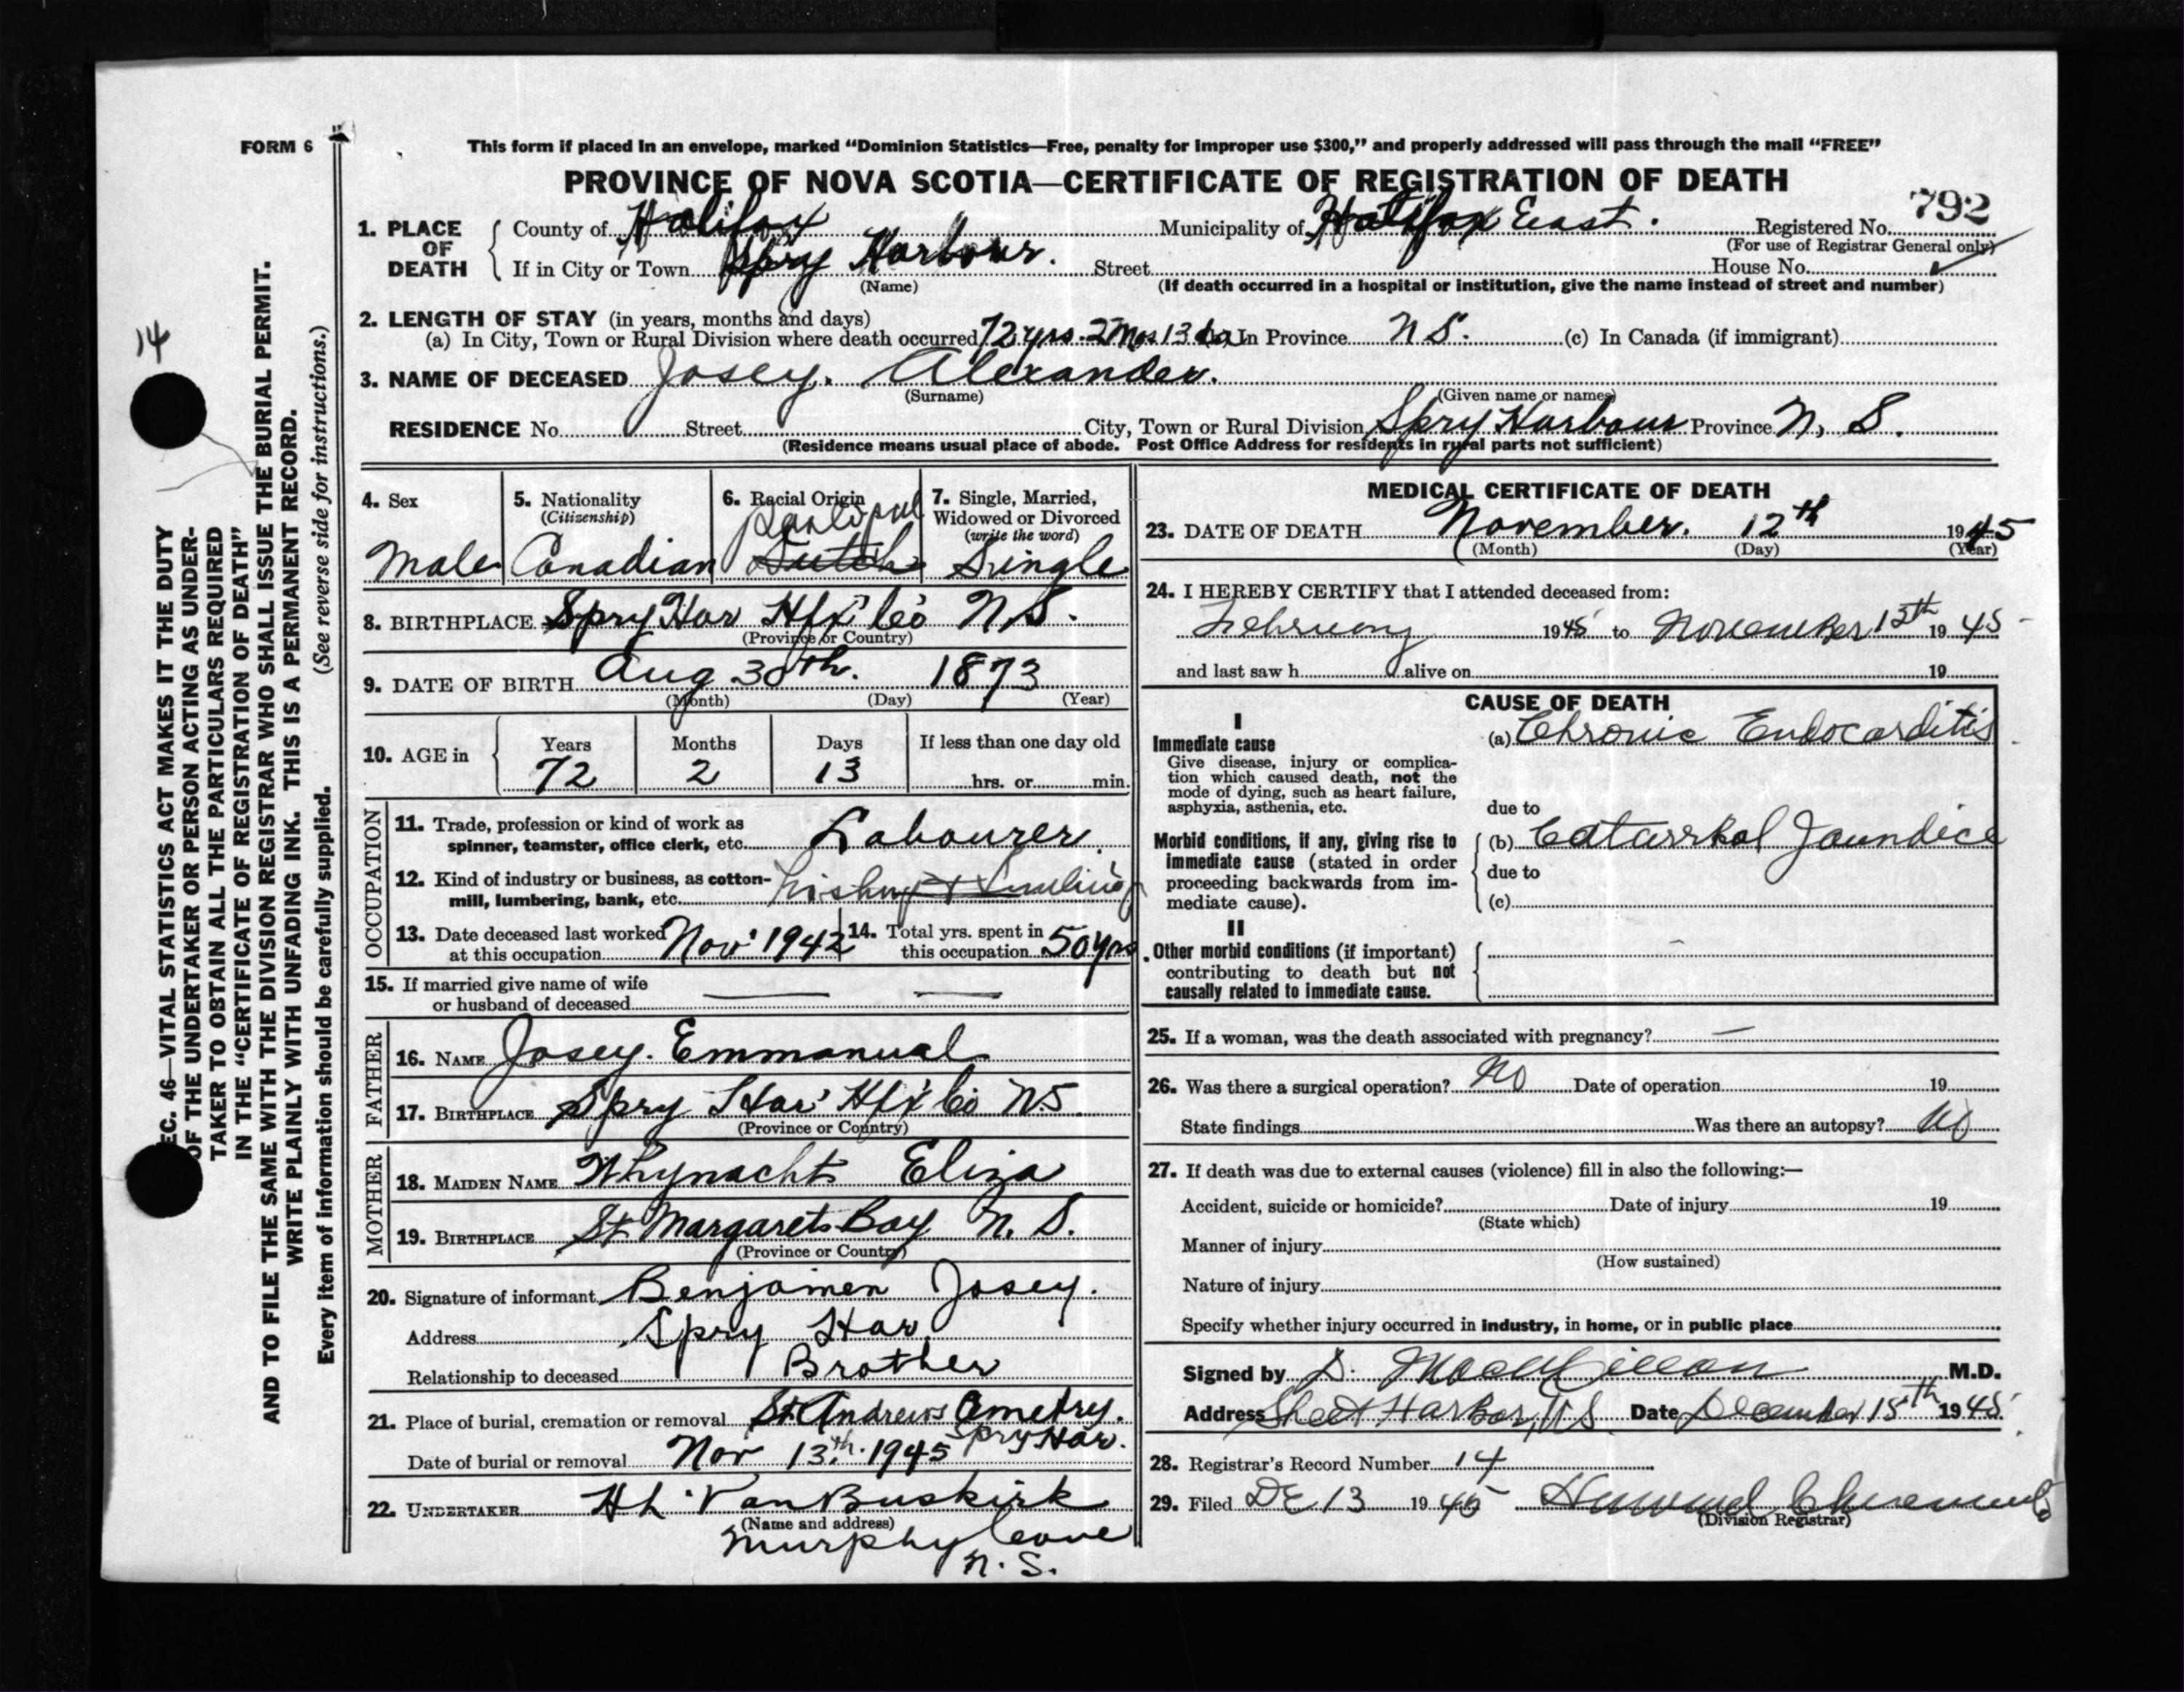 FORM 6
This form if placed in an envelope, marked “Dominion Statistics—Free, penalty for improper use $300,” and properly addressed will pass through the mail “FREE”
PROVINCE OF NOVA SCOTIA—CERTIFICATE OF REGISTRATION OF DEATH
792
1. PLACE OF DEATH County of Halifax Municipality of Halifax East. Registered No.
(For use of Registrar General only)
If in City or Town Spry Harbour. Street House No.
(Name) (If death occurred in a hospital or institution, give the name instead of street and number)
2. LENGTH OF STAY (in years, months and days)
(a) In City, Town or Rural Division where death occurred 72 yrs. 2 Mos 13 da In Province N S. (c) In Canada (if immigrant)
3. NAME OF DECEASED Josey. Alexander.
(Surname) (Given name or names)
RESIDENCE No. Street City, Town or Rural Division Spry Harbour Province N, S.
(Residence means usual place of abode. Post Office Address for residents in rural parts not sufficient)
4. Sex
Male
5. Nationality
(Citizenship)
Canadian
6. Racial Origin
Dutch
7. Single, Married,
Widowed or Divorced
(write the word)
Single
8. BIRTHPLACE Spry Har Hfx Co N.S.
(Province or Country)
9. DATE OF BIRTH Aug 30th. 1873
(Month) (Day) (Year)
10. AGE in Years Months Days If less than one day old
72 2 13 hrs. or min.
OCCUPATION
11. Trade, profession or kind of work as
spinner, teamster, office clerk, etc. Labourer.
12. Kind of industry or business, as cotton-
mill, lumbering, bank, etc. Fishing &
13. Date deceased last worked
at this occupation Nov' 1942
14. Total yrs. spent in
this occupation 50 yrs
15. If married give name of wife
or husband of deceased — —
FATHER
16. NAME Josey. Emmanual
17. BIRTHPLACE Spry Har' Hfx Co N.S
(Province or Country)
MOTHER
18. MAIDEN NAME Whynacht Eliza
19. BIRTHPLACE St Margarets Bay N. S.
(Province or Country)
20. Signature of informant Benjamen Josey.
Address Spry Har.
Relationship to deceased Brother
21. Place of burial, cremation or removal St. Andrews Cemetry.
Spry Har.
Date of burial or removal Nov 13th. 1945
22. UNDERTAKER H L VanBuskirk
(Name and address)
Murphy Cove
N. S.
MEDICAL CERTIFICATE OF DEATH
23. DATE OF DEATH November. 12th 1945
(Month) (Day) (Year)
24. I HEREBY CERTIFY that I attended deceased from:
February 1945 to November 13th 1945
and last saw h alive on 19
CAUSE OF DEATH
I
Immediate cause
Give disease, injury or complica-
tion which caused death, not the
mode of dying, such as heart failure,
asphyxia, asthenia, etc.
(a) Chronic Endocarditis
due to
Morbid conditions, if any, giving rise to
immediate cause (stated in order
proceeding backwards from im-
mediate cause).
(b) Catarrhal Jaundice
due to
(c)
II
Other morbid conditions (if important)
contributing to death but not
causally related to immediate cause.
25. If a woman, was the death associated with pregnancy? —
26. Was there a surgical operation? No Date of operation 19
State findings Was there an autopsy? No
27. If death was due to external causes (violence) fill in also the following:—
Accident, suicide or homicide? Date of injury 19
(State which)
Manner of injury
(How sustained)
Nature of injury
Specify whether injury occurred in industry, in home, or in public place
Signed by D. MacMillan M.D.
Address Sheet Harbor, N S Date December 15th 1945
28. Registrar's Record Number 14
29. Filed DE 13 1945
(Division Registrar)
14
EC. 46—VITAL STATISTICS ACT MAKES IT THE DUTY
OF THE UNDERTAKER OR PERSON ACTING AS UNDER-
TAKER TO OBTAIN ALL THE PARTICULARS REQUIRED
IN THE “CERTIFICATE OF REGISTRATION OF DEATH”
AND TO FILE THE SAME WITH THE DIVISION REGISTRAR WHO SHALL ISSUE THE BURIAL PERMIT.
WRITE PLAINLY WITH UNFADING INK. THIS IS A PERMANENT RECORD.
Every item of information should be carefully supplied. (See reverse side for instructions.)